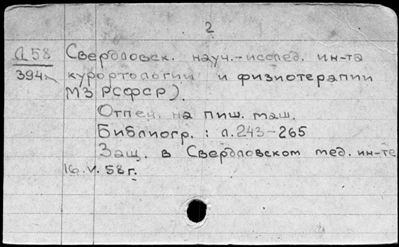 2
Д 58 Свердловск. науч.-исслед. ин-та
394 курортологии и физиотерапии
МЗ РСФСР).
Отпеч. на пиш. маш.
Библиогр.: л. 243-265
Защ. в Свердловском мед. ин-те
16.V.58г.